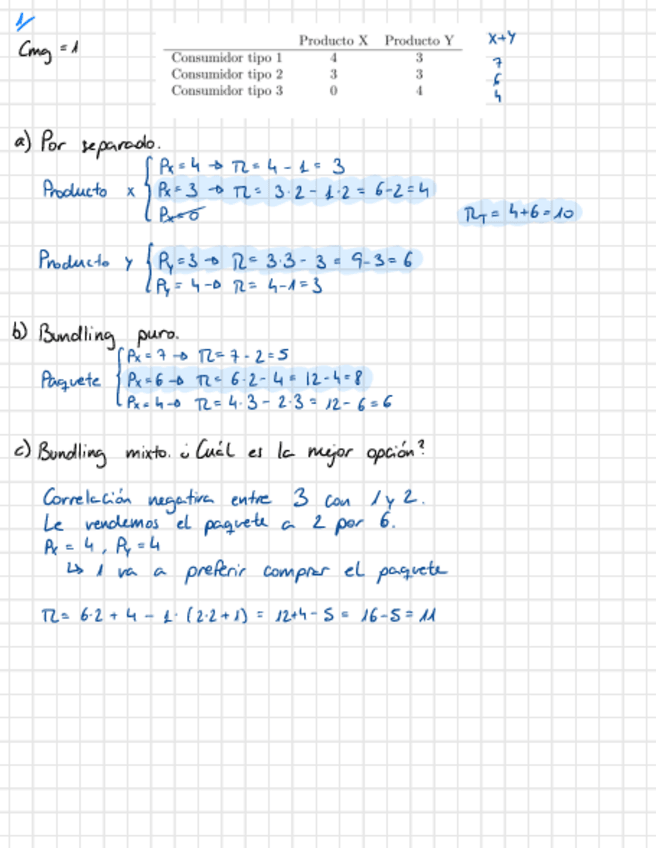 1/
Cmg = 1
Producto X Producto Y X+Y
Consumidor tipo 1 4 3 7
Consumidor tipo 2 3 3 6
Consumidor tipo 3 0 4 4
a) Por separado.
Px = 4 → π = 4 - 1 = 3
Producto x Px = 3 → π = 3·2 - 1·2 = 6-2 = 4
Px=0
πT = 4+6 = 10
Producto y Py = 3 → π = 3·3 - 3 = 9-3 = 6
Py = 4 → π = 4-1 = 3
b) Bundling puro.
Px = 7 → π = 7 - 2 = 5
Paquete Px = 6 → π = 6·2 - 4 = 12-4 = 8
Px = 4 → π = 4·3 - 2·3 = 12-6 = 6
c) Bundling mixto. ¿Cuál es la mejor opción?
Correlación negativa entre 3 con 1 y 2.
Le vendemos el paquete a 2 por 6.
Px = 4, Py = 4
↳ 1 va a preferir comprar el paquete
π = 6·2 + 4 - 1·(2·2+1) = 12+4-5 = 16-5 = 11